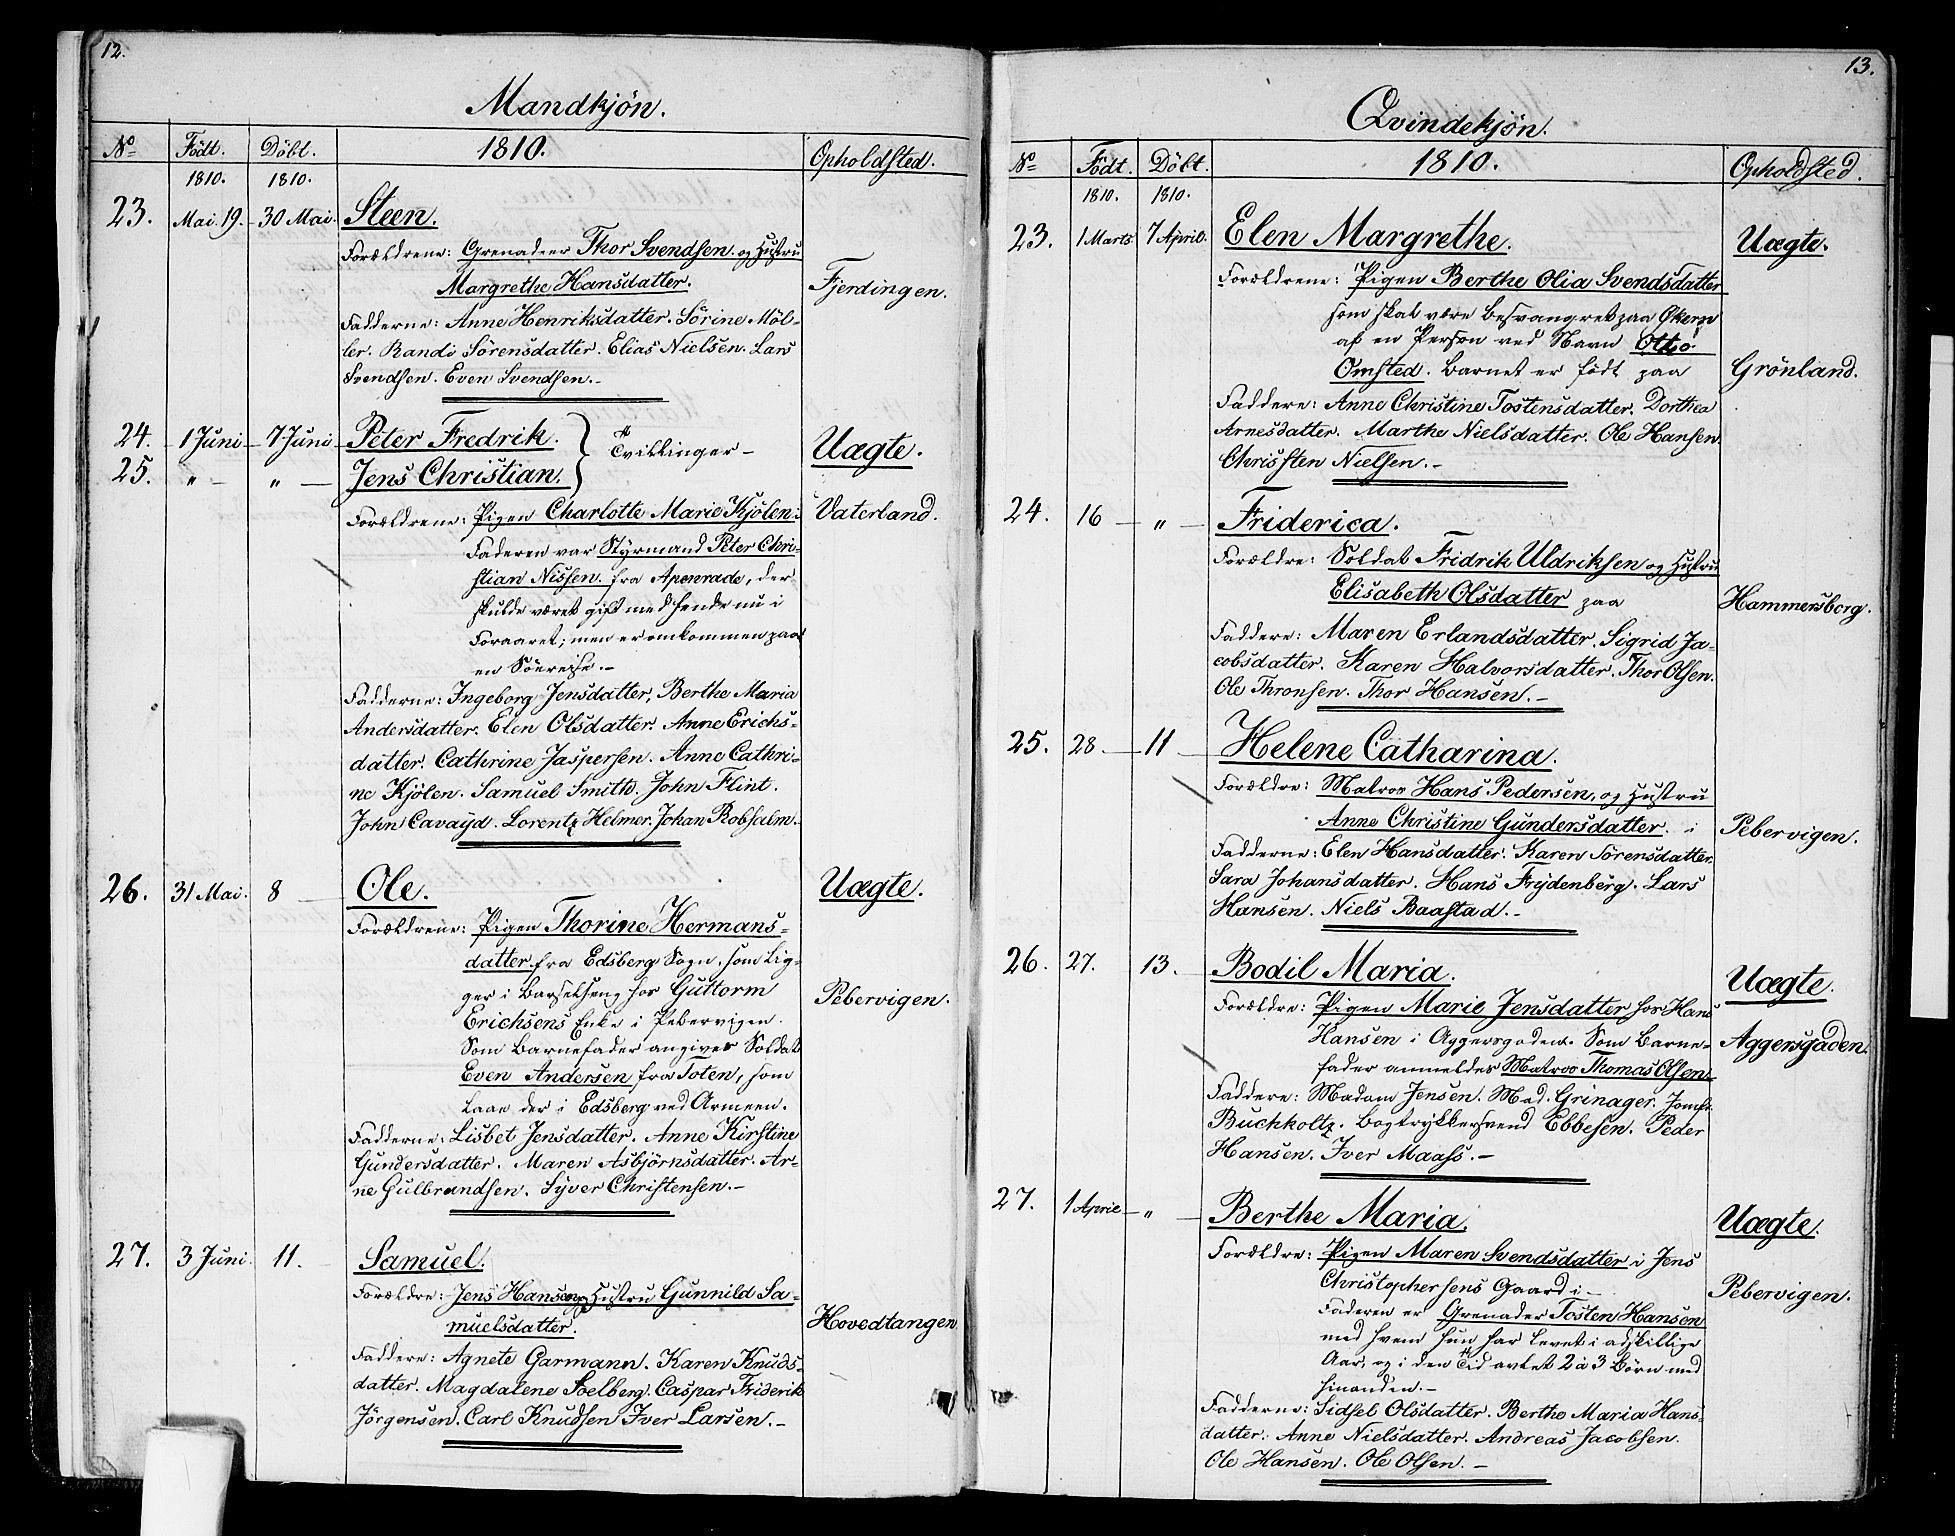 12.
Mandkjön.
No Födt. Döbt. 1810. Opholdsted.
1810. 1810.
23. Mai. 19. 30 Mai. Steen.
Forældrene: Grenadeer Thor Svendsen og Hustru
Margrethe Hansdatter. Fjerdingen.
Fadderne: Anne Henriksdatter. Sörine Möl-
ler. Randi Sörensdatter. Elias Nielsen. Lars
Svendsen. Even Svendsen.-
24. 1 Juni 7 Juni Peter Fredrik. Tvillinger - Uægte.
25. " " Jens Christian.
Forældrene: Pigen Charlotte Marie Kjölen: Vaterland.
Faderen var Styrmand Peter Chri-
stian Nissen. fra Apenrade, der
skulde været gift med hende nu i
Foraaret; men er omkommen paa
en Söereise.-
Fadderne: Ingeborg Jensdatter, Berthe Maria
Andersdatter. Elen Olsdatter. Anne Erichs-
datter. Cathrine Jaspersen. Anne Cathri-
ne Kjölen. Samuel Smith. John Flint.
John Cavayd. Lorentz Helmer. Johan Robsalm.
26. 31 Mai. 8 Ole. Uægte.
Forældrene: Pigen Thorine Hermans-
datter fra Edsberg Sogn. som lig-
ger i Barselseng hos Guttorm Pebervigen.
Erichsens Enke i Pebervigen.
Som Barnefader angives Soldat
Even Andersen fra Toten, som
laae der i Edsberg ved Armeen.
Fadderne: Lisbet Jensdatter. Anne Kirstine
Gundersdatter. Maren Asbjörnsdatter. Ar-
ne Gulbrandsen. Syver Christensen.-
27. 3 Juni 11. Samuel.
Forældre: Jens Hansen og Hustru Gunnild Sa-
muelsdatter. Hovedtangen
Faddere: Agnete Garmann. Karen Knuds-
datter. Magdalene Soelberg. Caspar Friderik
Jörgensen. Carl Knudsen Iver Larsen.-
13.
Qvindekjön.
No Födt. Döbt. 1810. Opholdsted.
1810. 1810.
23. 1 Marts. 7 April. Elen Margrethe. Uægte.
Forældrene: Pigen Berthe Olia Svendsdatter
som skal være besvangret paa Økern
af en Person ved Navn Otto
Omsted. Barnet er födt paa Grönland.
Faddere: Anne Christine Tostensdatter. Dorthea
Arnesdatter. Marthe Nielsdatter. Ole Hansen
Christen Nielsen.-
24. 16 " Friderica.
Forældre: Soldat Fridrik Uldriksen og Hustru
Elisabeth Olsdatter paa Hammersborg.
Faddere: Maren Erlandsdatter. Sigrid Ja-
cobsdatter. Karen Halvorsdatter. Thor Olsen.
Ole Thronsen. Thor Hansen.-
25. 28 11 Helene Catharina.
Forældre: Matros Hans Pedersen, og Hustru
Anne Christine Gundersdatter. i Pebervigen.
Fadderne: Elen Hansdatter. Karen Sörensdatter.
Sara Johansdatter. Hans Frydenberg. Lars
Hansen. Niels Baastad.-
26. 27. 13. Bodil Maria. Uægte.
Forældre: Pigen Marie Jensdatter hos Hans
Hansen i Aggersgaden. Som Barne- Aggersgaden.
fader anmeldes Matros Thomas Olsen.
Faddere: Madam Jensen. Mad. Grinager. Jomfr.
Buchholtz. Bogtrykkersvend Ebbesen. Peder
Hansen. Iver Maass.-
27. 1 April " Berthe Maria. Uægte.
Forældre: Pigen Maren Svendsdatter i Jens
Christophersens Gaard i - Pebervigen.
Faderen er Grenader Tosten Hansen
med hvem hun har levet i adskillige
Aar, og i den Tid avlet 2 à 3 Börn med
hinanden.-
Fadderne: Sidsel Olsdatter. Berthe Maria Hans-
datter. Anne Nielsdatter. Andreas Jacobsen.
Ole Hansen. Ole Olsen.-